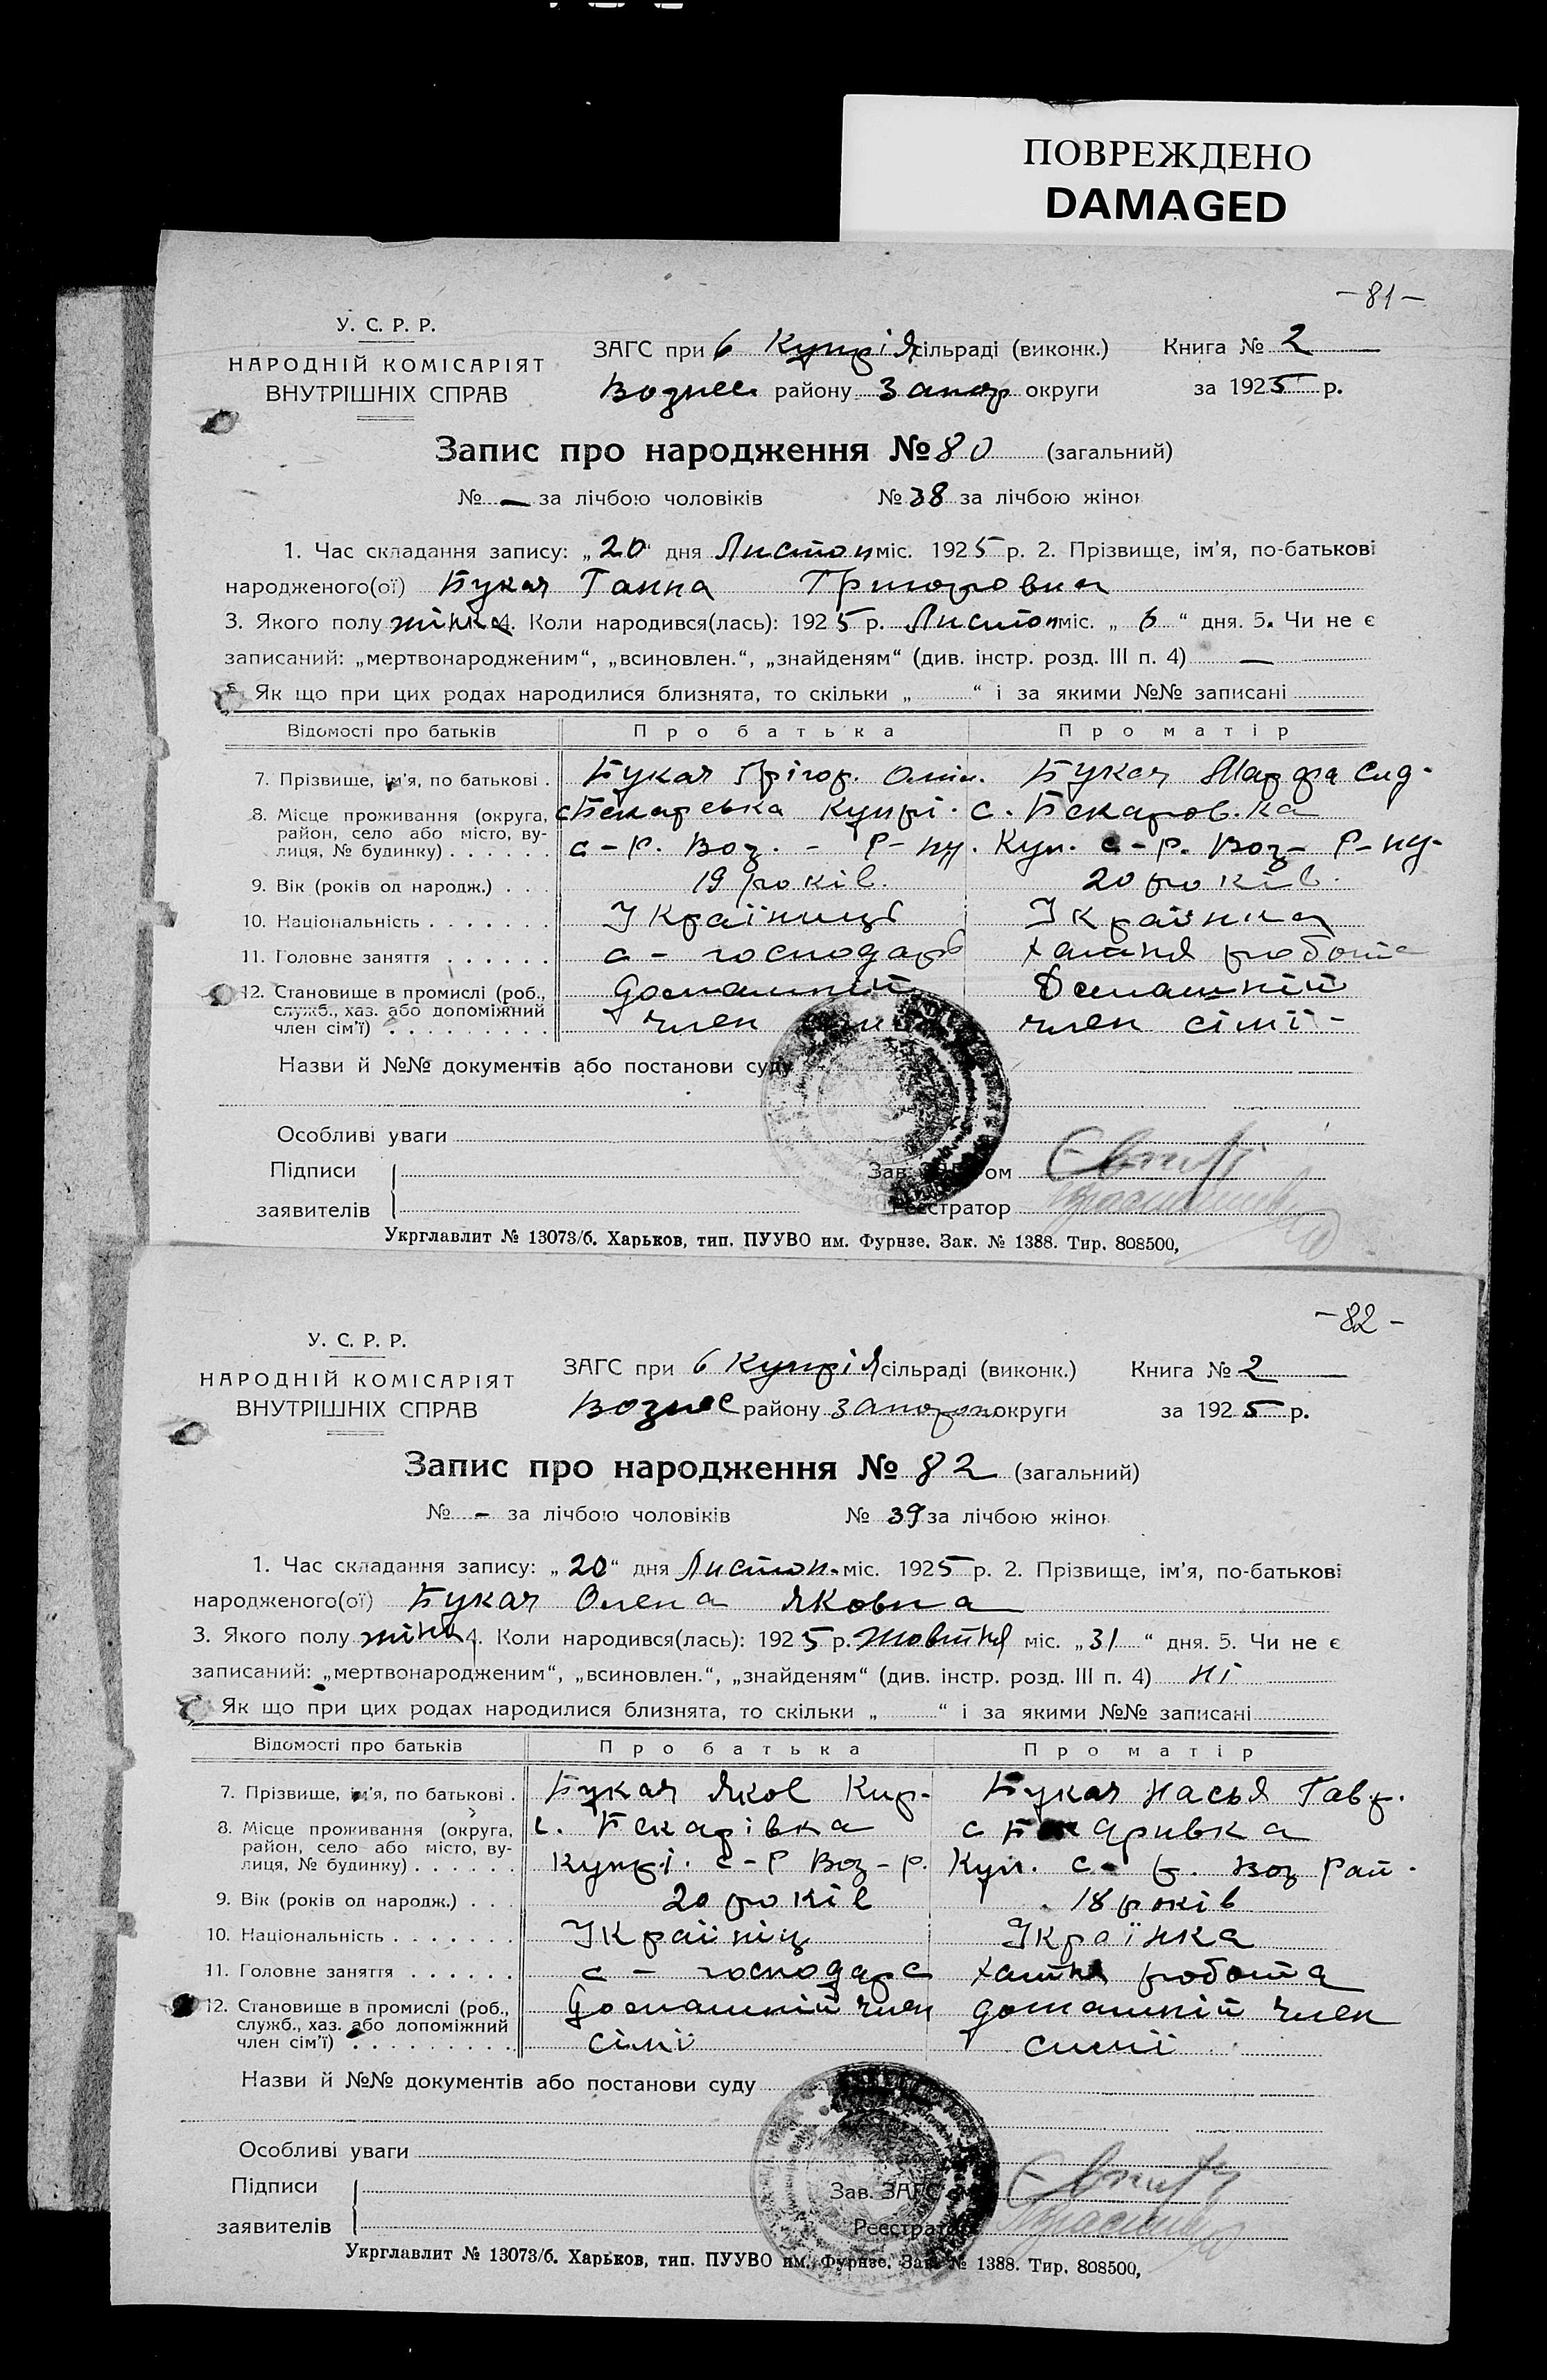 ПОВРЕЖДЕНО
DAMAGED
-81-
У. С. Р. Р.
НАРОДНІЙ КОМІСАРІЯТ
ВНУТРІШНІХ СПРАВ
ЗАГС при 6 Купрія сільраді (виконк.)
Книга № 2
Вознес. району Запор округи
за 1925 р.
Запис про народження № 80 (загальний)
№ — за лічбою чоловіків № 38 за лічбою жінок
1. Час складання запису: „20“ дня Листоп міс. 1925 р. 2. Прізвище, ім’я, по-батькові
народженого(ої) Букач Ганна Григоровна
3. Якого полу жінка 4. Коли народився(лась): 1925 р. Листоп міс. „6“ дня. 5. Чи не є
записаний: „мертвонародженим“, „всиновлен.“, „знайденям“ (див. інстр. розд. III п. 4) —
Як що при цих родах народилися близнята, то скільки „ “ і за якими №№ записані
Відомості про батьків Про батька Про матір
7. Прізвище, ім’я, по батькові . Букач Грігор. Букач Марфа Сид.
8. Місце проживання (округа, район, село або місто, вулиця, № будинку) . . . . . . с Бекаревка Купрі. с. Бекаров.ка
с-р. Воз. - Р-ну. Куп. с-р. Воз- Р-ну.
9. Вік (років од народж.) . . . 19 років. 20 років.
10. Національність . . . . . . . Українищ Українка
11. Головне заняття . . . . . . с - господар хатня робота
12. Становище в промислі (роб., служб., хаз. або допоміжний член сім’ї) . . . . . . . . . домашній Домашній
член член сімї -
Назви й №№ документів або постанови суду
Особливі уваги
Підписи
заявителів
Зав. ЗАГСом
Реєстратор
Укрглавлит № 13073/б. Харьков, тип. ПУУВО им. Фурнзе. Зак. № 1388. Тир. 808500,
-82-
У. С. Р. Р.
НАРОДНІЙ КОМІСАРІЯТ
ВНУТРІШНІХ СПРАВ
ЗАГС при 6 Купрія сільраді (виконк.)
Книга № 2
Вознес району Запорож округи
за 1925 р.
Запис про народження № 82 (загальний)
№ - за лічбою чоловіків № 39 за лічбою жінок
1. Час складання запису: „20“ дня Листоп. міс. 1925 р. 2. Прізвище, ім’я, по-батькові
народженого(ої) Букач Олена Яковна
3. Якого полу жінка 4. Коли народився(лась): 1925 р. Жовтня міс. „31“ дня. 5. Чи не є
записаний: „мертвонародженим“, „всиновлен.“, „знайденям“ (див. інстр. розд. III п. 4) ні
Як що при цих родах народилися близнята, то скільки „ “ і за якими №№ записані
Відомості про батьків Про батька Про матір
7. Прізвище, ім’я, по батькові . Букач Яков Кир. Букач Насья Гавр.
8. Місце проживання (округа, район, село або місто, вулиця, № будинку) . . . . . . с. Бекарівка с Бекаривка
Купрі. с-р Воз-р. Куп. с-р. Воз Рай.
9. Вік (років од народж.) . . . 20 років 18 років
10. Національність . . . . . . . Україніц Українка
11. Головне заняття . . . . . . с - господарс хатня робота
12. Становище в промислі (роб., служб., хаз. або допоміжний член сім’ї) . . . . . . . . . домашній член домашній член
сімї симії
Назви й №№ документів або постанови суду
Особливі уваги
Підписи
заявителів
Зав. ЗАГС
Реєстратор
Укрглавлит № 13073/б. Харьков, тип. ПУУВО им. Фурнзе. Зак. № 1388. Тир. 808500,